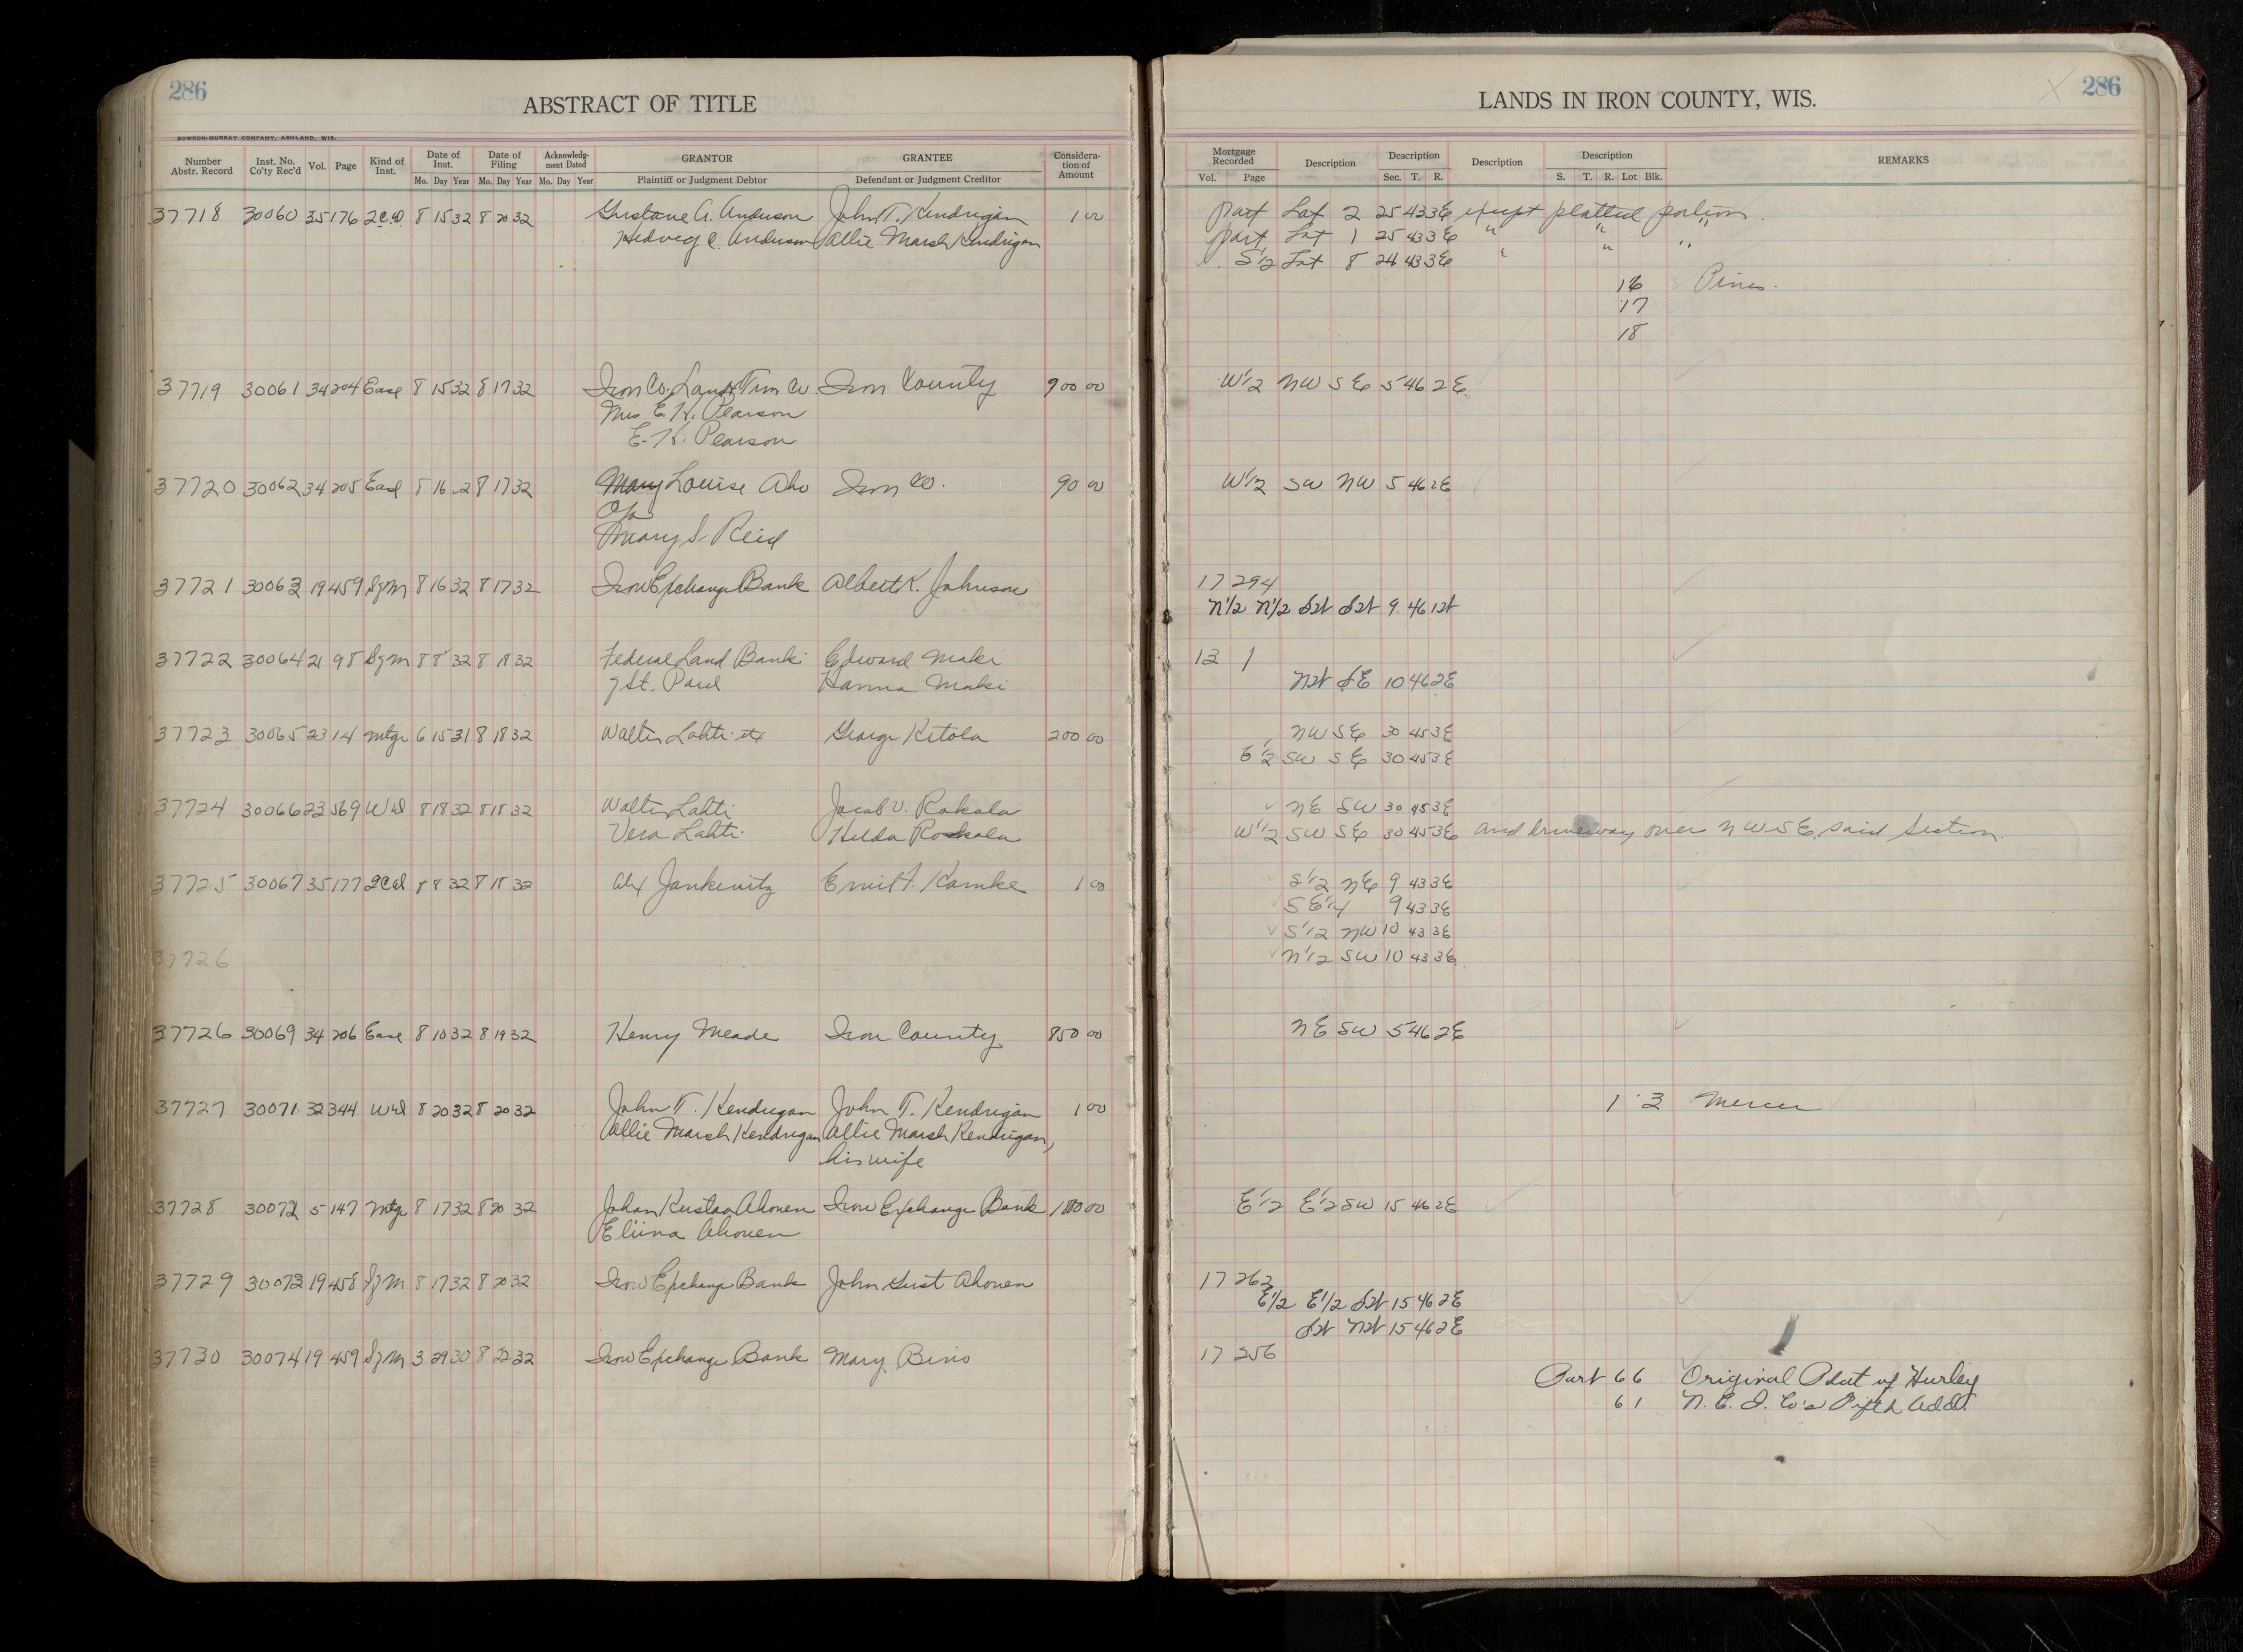 286
ABSTRACT OF TITLE
BOWRON-MURRAY COMPANY, ASHLAND, WIS.
Number Abstr. Record Inst. No. Co'ty Rec'd Vol. Page Kind of Inst. Date of Inst. Date of Filing Acknowledgment Dated GRANTOR GRANTEE Consideration of Amount
Mo. Day Year Mo. Day Year Mo. Day Year Plaintiff or Judgment Debtor Defendant or Judgment Creditor
37718 30060 35 176 2CD 8 15 32 8 20 32 Gustave A. Anderson John T. Kendrigan 1 00
Hedveg C. Anderson Allie Marsh Kendrigan
37719 30061 34 204 Ease 8 15 32 8 17 32 Iron Co. Land & Tim Co. Iron County 900 00
Mrs E. H. Pearson
E. H. Pearson
37720 30062 34 205 Ease 8 16 32 8 17 32 Mary Louise Aho Iron Co. 90 00
Mary L Reid
37721 30063 19 459 SgM 8 16 32 8 17 32 Iron Exchange Bank Albert K. Johnson
37722 30064 21 98 SgM 8 8 32 8 18 32 Federal Land Bank Edward Maki
of St. Paul Hanna Maki
37723 30065 23 14 Mtge 6 15 31 8 18 32 Walter Lahti etx George Ketola 200 00
37724 30066 23 569 Wd 8 18 32 8 18 32 Walter Lahti Jacob V. Rokala
Vera Lahti Hilda Rokala
37725 30067 35 177 2Cd 8 8 32 8 18 32 Alex Jankevitz Emil F. Kamke 1 00
37726
37726 30069 34 206 Ease 8 10 32 8 19 32 Henry Meade Iron County 850 00
37727 30071 32 344 Wd 8 20 32 8 20 32 John T. Kendrigan John T. Kendrigan 1 00
Allie Marsh Kendrigan Allie Marsh Kendrigan,
his wife
37728 30072 5 147 Mtge 8 17 32 8 20 32 Johan Kustaa Ahonen Iron Exchange Bank
Eliina Ahonen
37729 30073 19 458 SgM 8 17 32 8 20 32 Iron Exchange Bank John Gust Ahonen
37730 30074 19 459 SgM 3 29 30 8 22 32 Iron Exchange Bank Mary Bino
LANDS IN IRON COUNTY, WIS.
286
Mortgage Recorded Description Description Description Description REMARKS
Vol. Page Sec. T. R. S. T. R. Lot Blk.
part Lot 2 25 43 3E except platted portion.
part Lot 1 25 43 3E " " "
S1/2 Lot 8 24 43 3E " " "
16 Pines.
17
18
W1/2 NW SE 5 46 2E
W1/2 SW NW 5 46 2E
17 294
N1/2 N1/2 SW SW 9 46 1W
13 1
NW SE 10 46 2E
NW SE 30 45 3E
E1/2 SW SE 30 45 3E
NE SW 30 45 3E
W1/2 SW SE 30 45 3E and driveway over NW SE said Section.
S1/2 NE 9 43 3E
SE1/4 9 43 3E
S1/2 NW 10 43 3E
N1/2 SW 10 43 3E
NE SW 5 46 2E
1 3 Mercer
E1/2 E1/2 SW 15 46 2E
17 262
E1/2 E1/2 SW 15 46 2E
SW NW 15 46 2E
17 256
Part 6 6 Original Plat of Hurley
6 1 N. C. I. Co's Fifth Add.